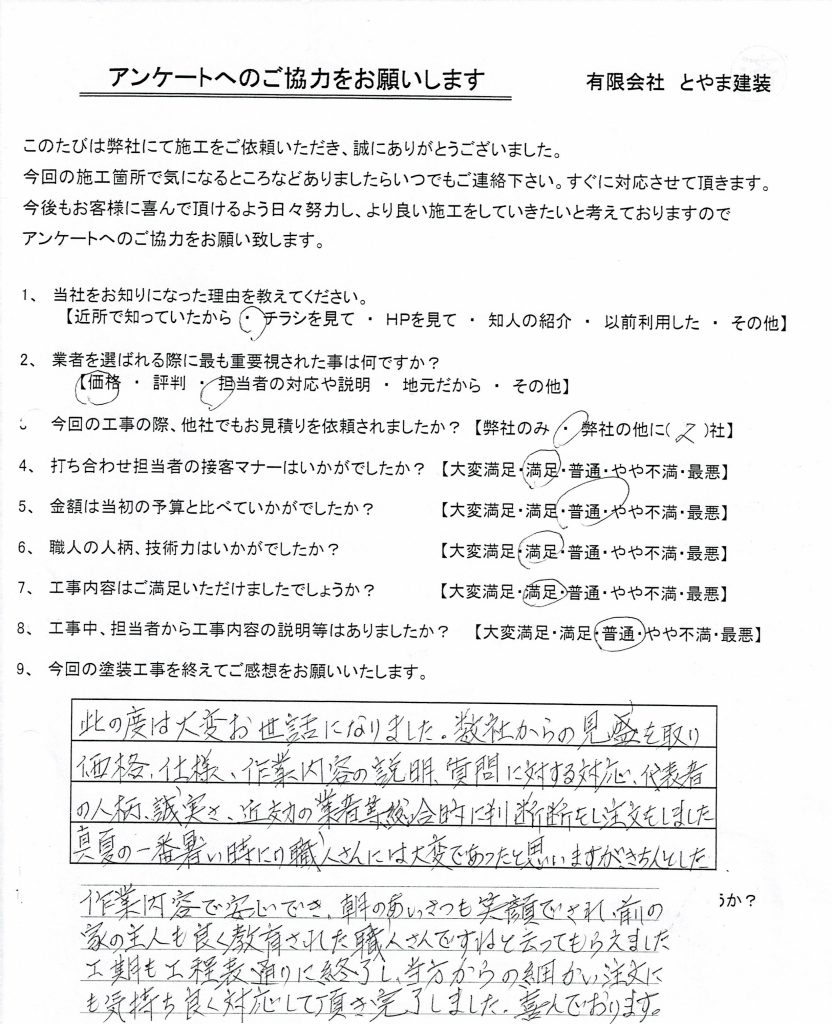 アンケートへのご協力をお願いします
有限会社 とやま建装
このたびは弊社にて施工をご依頼いただき、誠にありがとうございました。
今回の施工箇所で気になるところなどありましたらいつでもご連絡下さい。すぐに対応させて頂きます。
今後もお客様に喜んで頂けるよう日々努力し、より良い施工をしていきたいと考えておりますので
アンケートへのご協力をお願い致します。
1、 当社をお知りになった理由を教えてください。
【近所で知っていたから ・ チラシを見て ・ HPを見て ・ 知人の紹介 ・ 以前利用した ・ その他】
2、 業者を選ばれる際に最も重要視された事は何ですか？
【価格 ・ 評判 ・ 担当者の対応や説明 ・ 地元だから ・ その他】
今回の工事の際、他社でもお見積りを依頼されましたか？ 【弊社のみ ・ 弊社の他に( 2 )社】
4、 打ち合わせ担当者の接客マナーはいかがでしたか？ 【大変満足・満足・普通・やや不満・最悪】
5、 金額は当初の予算と比べていかがでしたか？ 【大変満足・満足・普通・やや不満・最悪】
6、 職人の人柄、技術力はいかがでしたか？ 【大変満足・満足・普通・やや不満・最悪】
7、 工事内容はご満足いただけましたでしょうか？ 【大変満足・満足・普通・やや不満・最悪】
8、 工事中、担当者から工事内容の説明等はありましたか？ 【大変満足・満足・普通・やや不満・最悪】
9、 今回の塗装工事を終えてご感想をお願いいたします。
此の度は大変お世話になりました。数社からの見盛を取り
価格、仕様、作業内容の説明、質問に対する対応、代表者
の人柄、誠実さ、近効の業者等総合的に判断断をし注文をしました
真夏の一番暑い時にり職人さんには大変であったと思いますがきちんとした
作業内容で安心でき、朝のあいさつも笑顔でされ、前の
家の主人も良く教育された職人さんですねと云ってもらえました
工期も工程表通りに終了し、当方からの細かい注文に
も気持ち良く対応して頂き完了しました。喜んでおります。
うか？